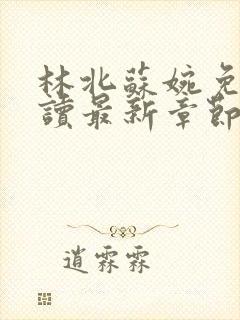 林北蘇婉免
讀最新章節
逍霖霖